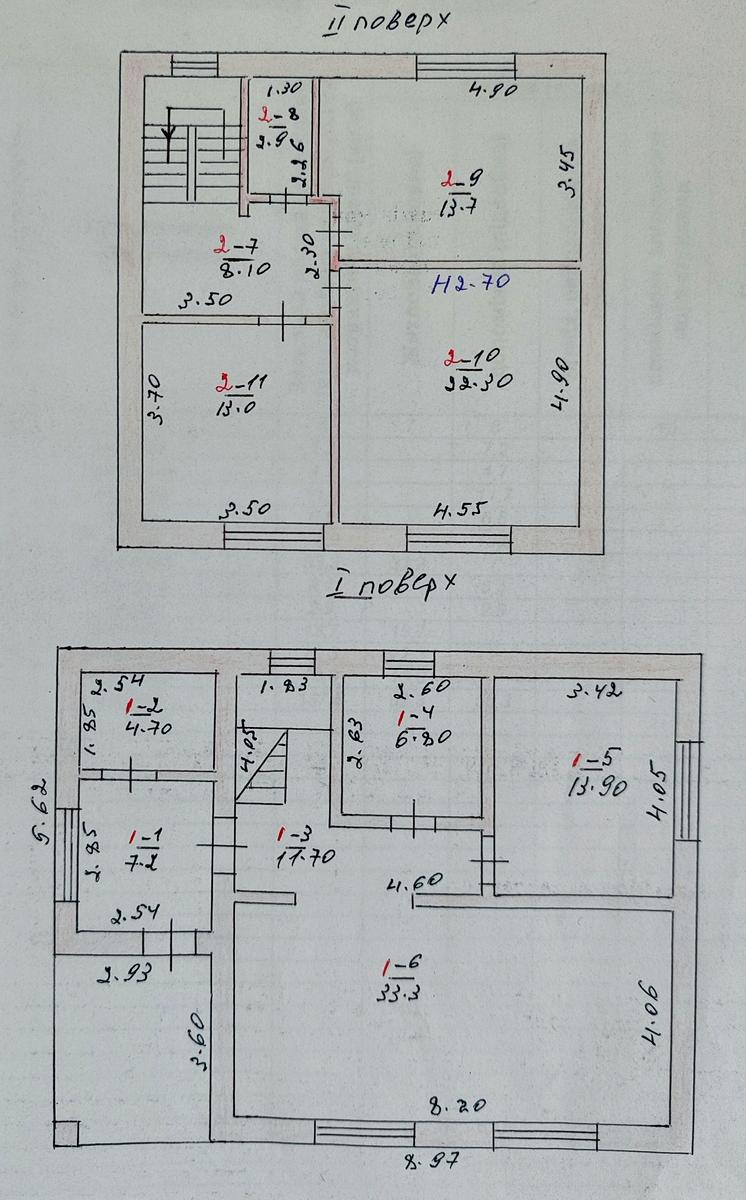 II поверх
1.30
2-8
2.9
2.26
4.90
3.45
2-9
13.7
2-7
8.10
2.30
3.50
H2-70
2-10
22.30
4.90
3.70
2-11
13.0
3.50
4.55
I поверх
2.54
1.85
1-2
4.70
1.83
4.05
2.60
1-4
6.80
2.63
3.42
1-5
13.90
4.05
5.62
2.85
1-1
7.2
1-3
11.70
2.54
4.60
2.93
1-6
33.3
3.60
4.06
8.20
8.97